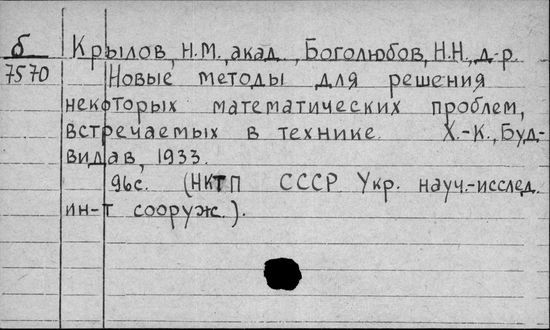 б Крылов, Н.М., акад., Боголюбов, Н.Н., д-р.
7570 Новые методы для решения
некоторых математических проблем,
встречаемых в технике. Х.-К., Буд-
видав, 1933.
96с. (НКТП СССР Укр. науч.-исслед.
ин-т сооруж.).